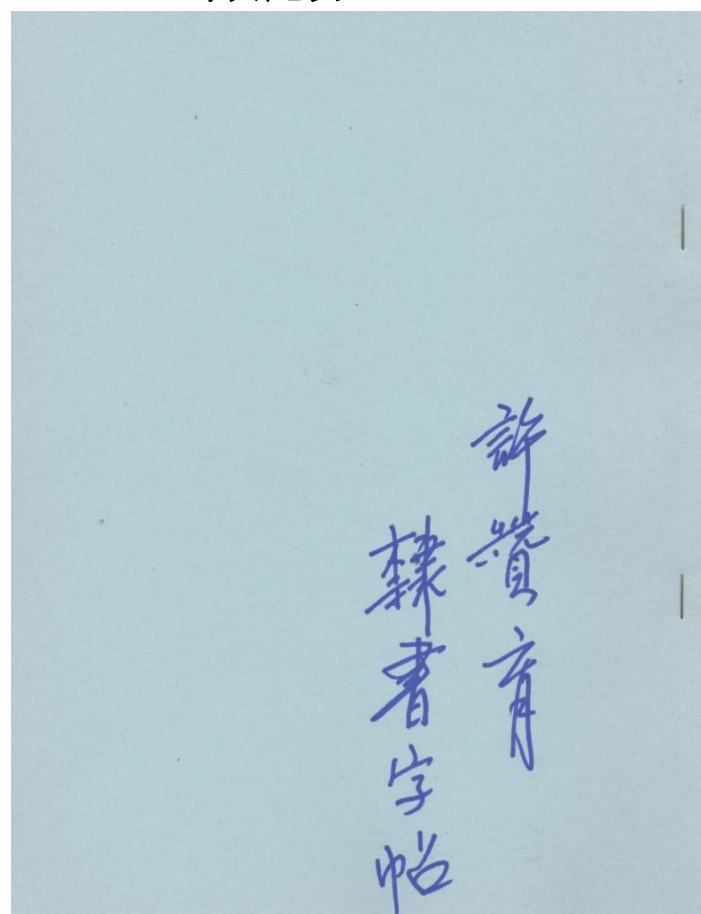 許贊育
隸書字帖